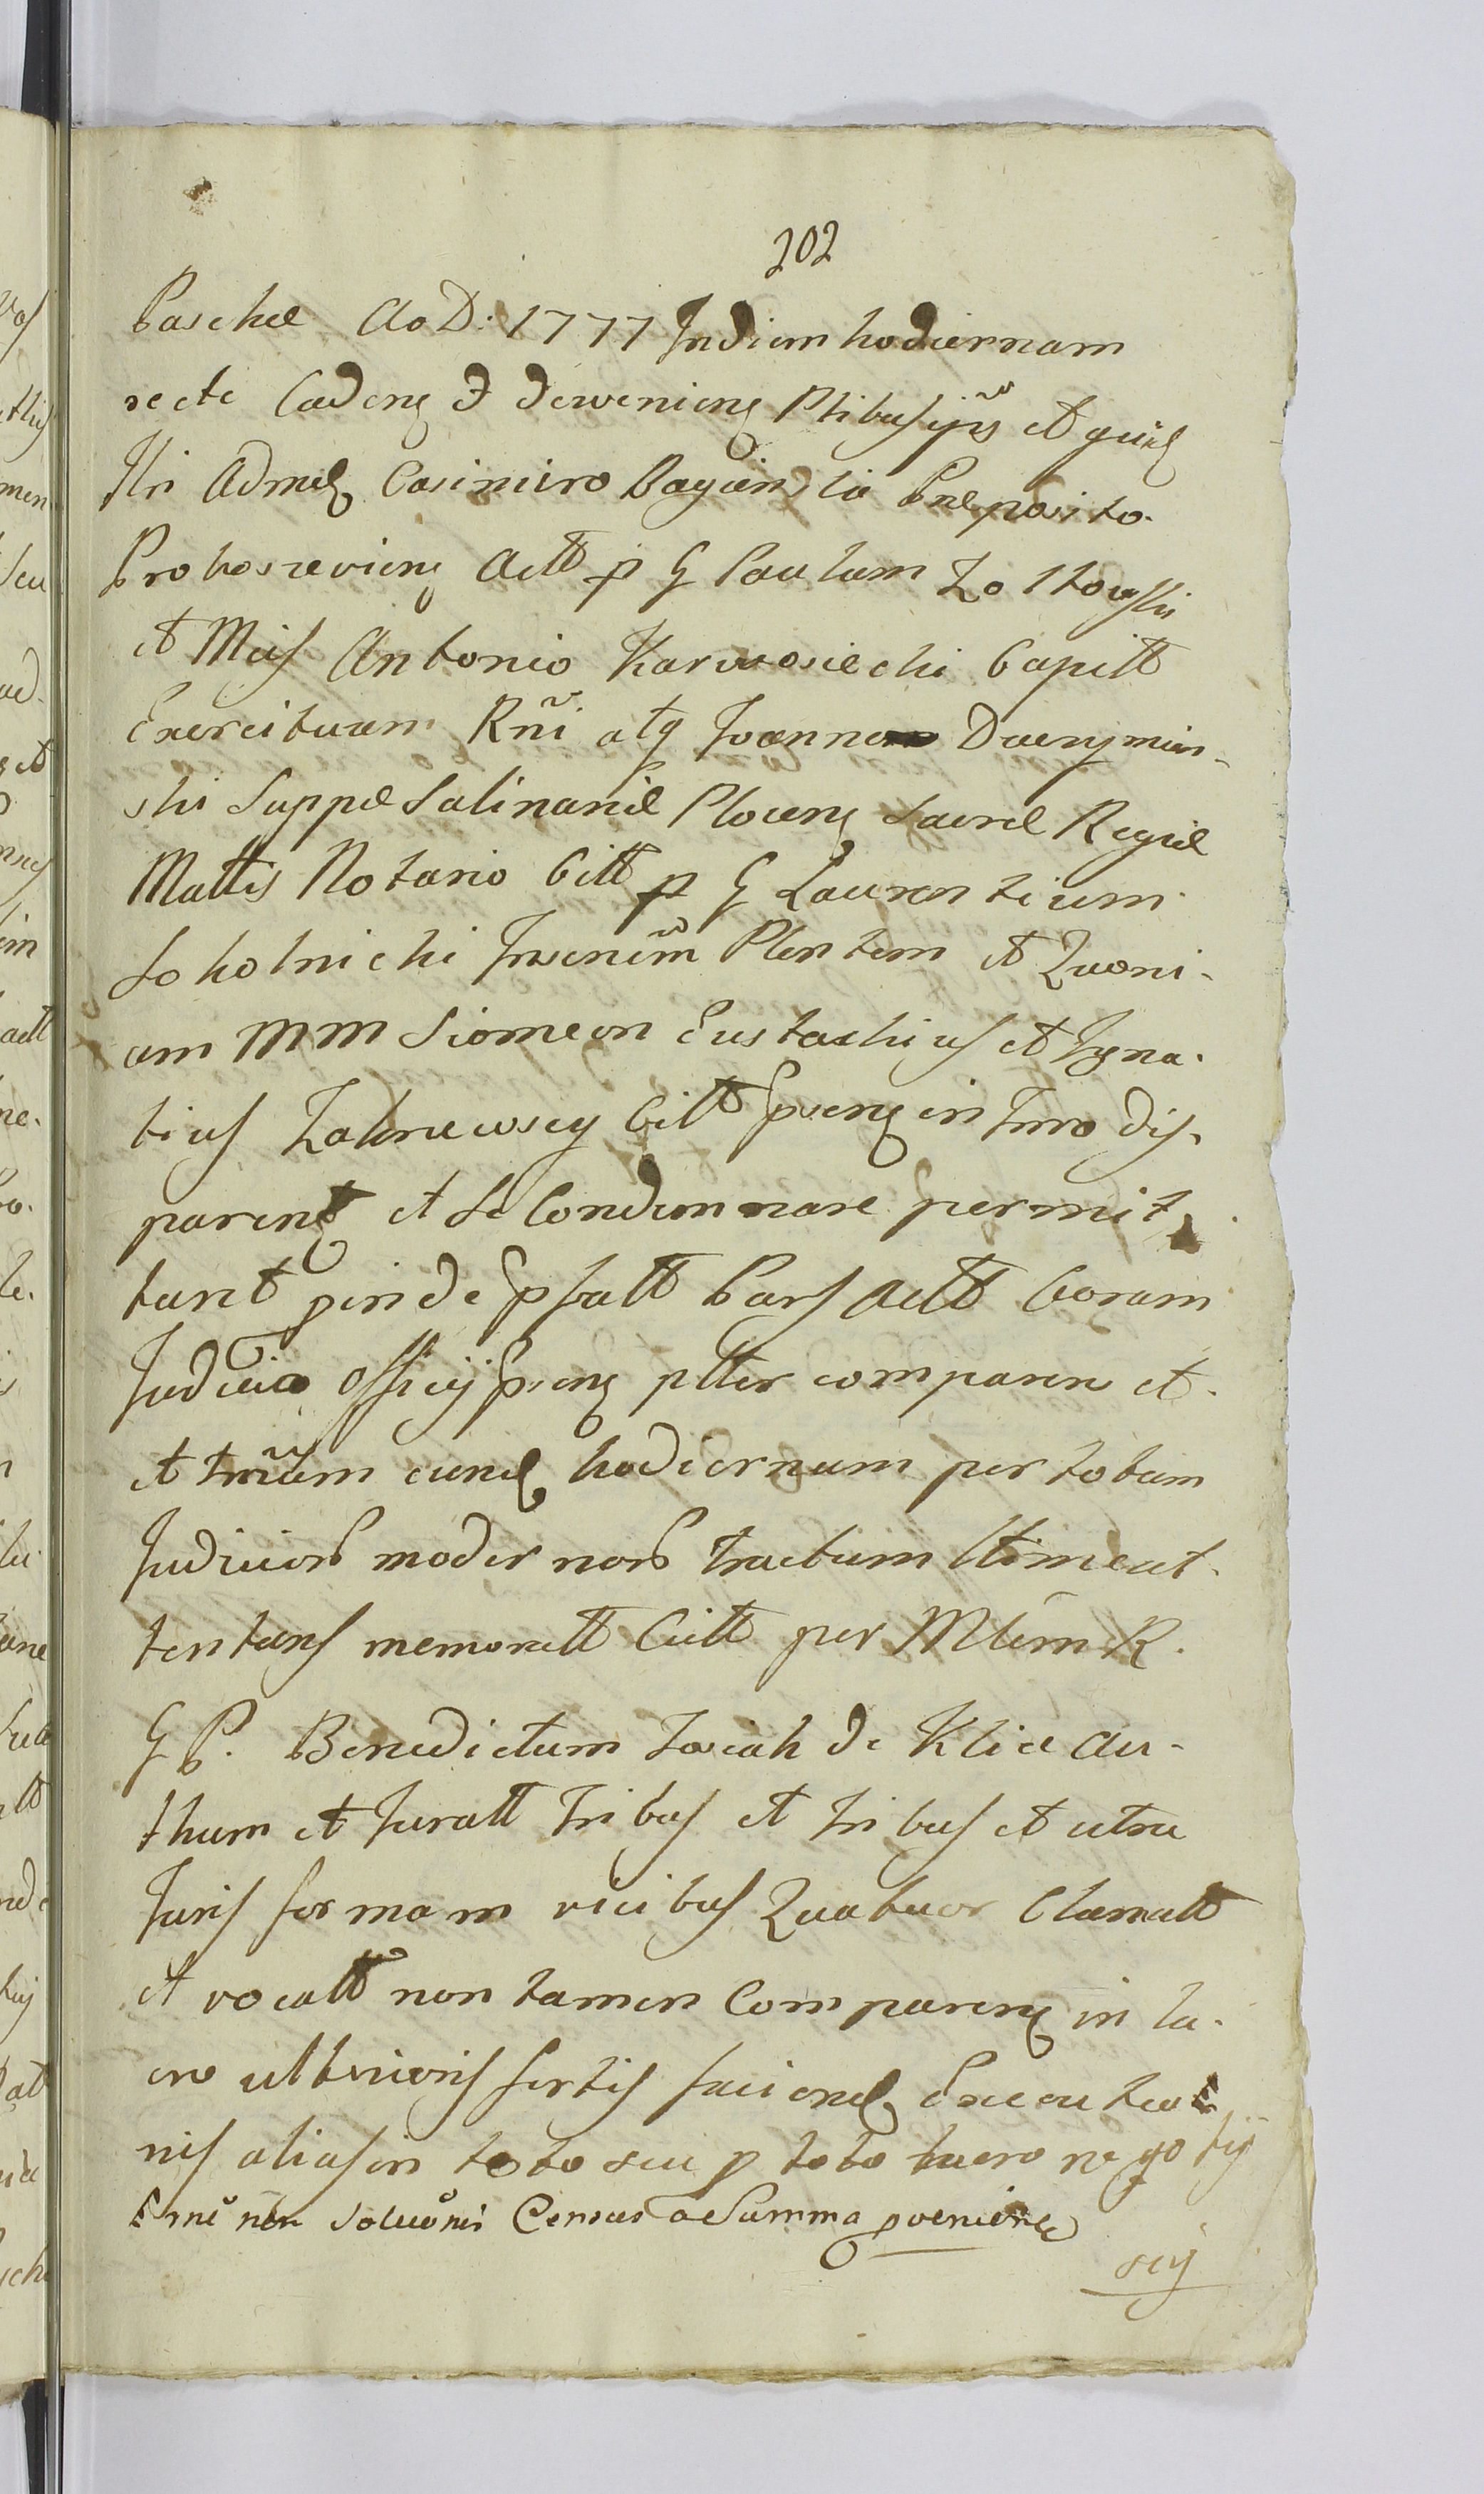 202
Paschae Ao D: 1777 In diem hodiernam
recte Cadens & deveniens Ptibus ijs et quid
Illri Admd Casimiro Bagienskia Praeposito
Proboszeviens Actt p G Paulum Zolkowski
et Mcis Antonio Karwosiecki Capitt
Exercituum Rni atq Joanne Duczymin-
ski Suppae Salinariae Plocens Sacrae Regiae
Mattis Notario Citt p G Laurentium
Sokolnicki Juvenem Plentem et Quoni-
am MM Siomeon Eustachius et Igna-
tius Zaluewscy Citt Psens in Tmo dis-
parent et se Condemnare permit-
tunt proinde pfatt Pars Actt Coram
Judicio Officij Psens ptter comparen et
et tmum eund hodiernum per totum
Judiciorb modernorb tractum ttimeat
tentans memoratt Citt per Mlem R.
G P. Benedictum Josiak de Klice au-
thum et Juratt Tribus et tribus et utra
Juris formam vicibus Quatuor Clamatt
et vocatt non tamen Comparens in lu-
cro ulterioris sortis faciend Executio-
nis alias in toto seu p toto lucro negotij
non Soluonis Census a Summa pveniend
scij